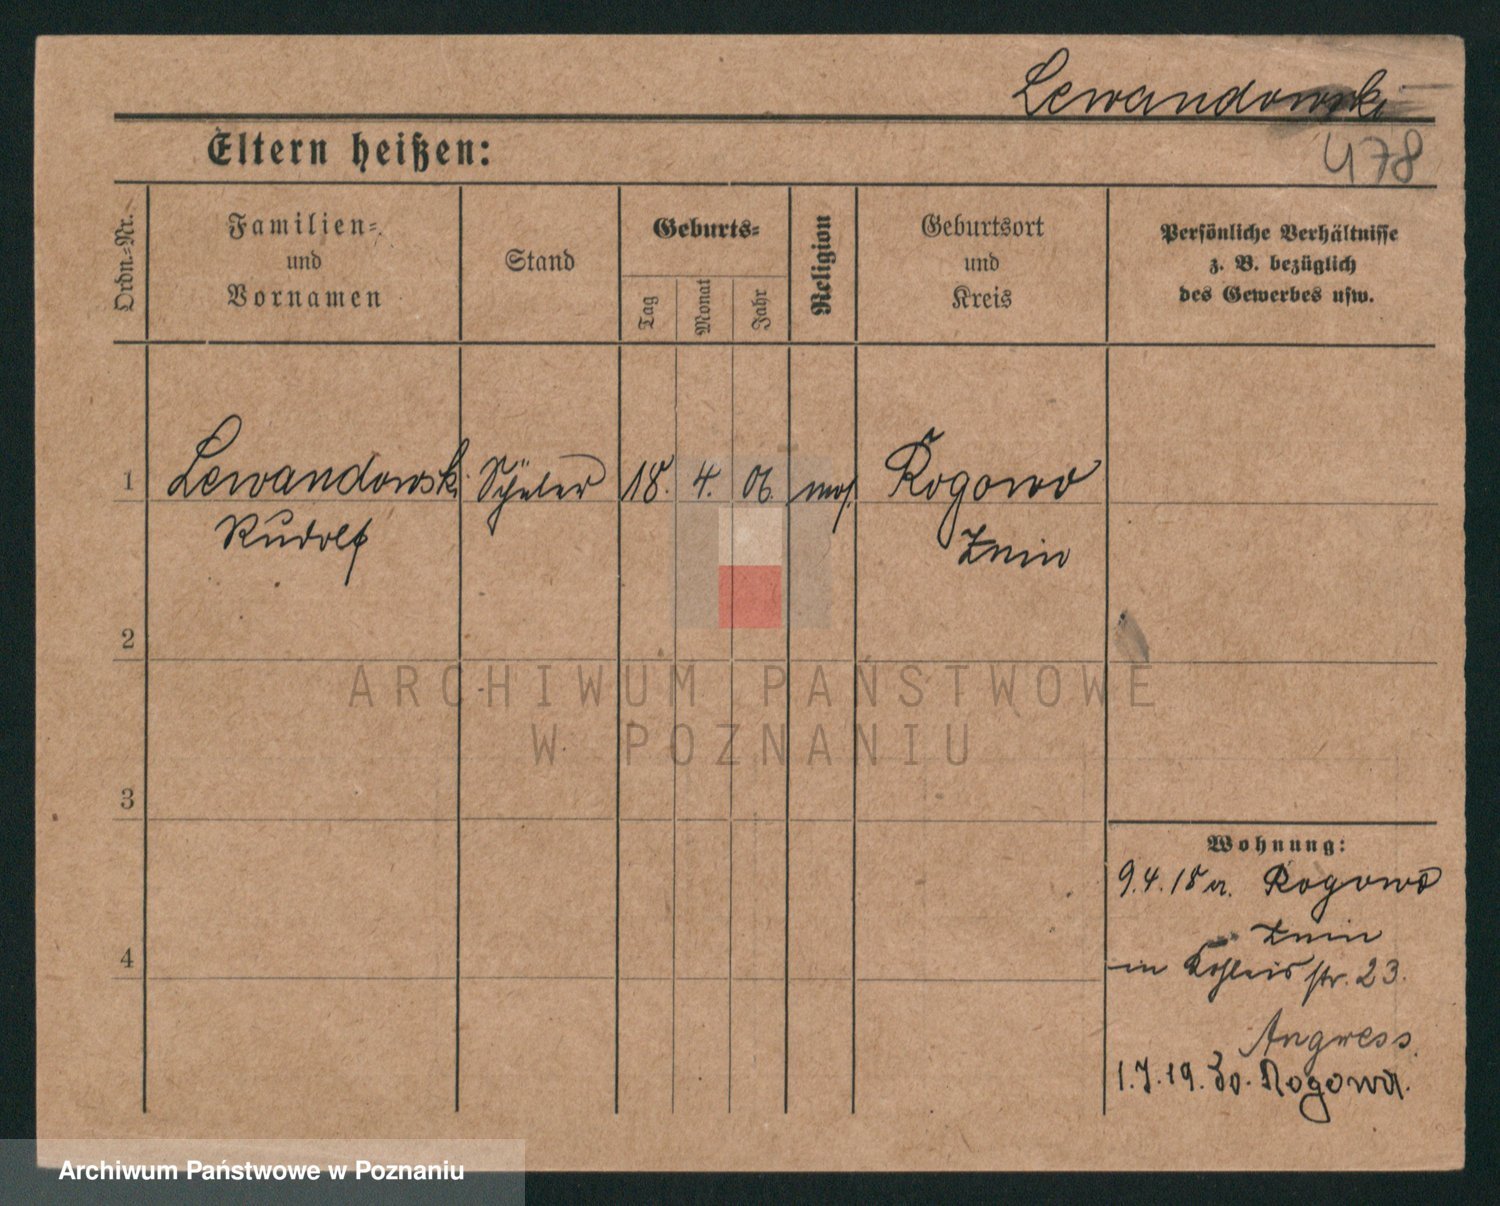 Lewandowski
478
Eltern heißen:
Ordn.=Nr.
Familien=
und
Vornamen
Stand
Geburts=
Tag
Monat
Jahr
Religion
Geburtsort
und
Kreis
Persönliche Verhältnisse
z. B. bezüglich
des Gewerbes usw.
1
Lewandowski
Rudolf
Schüler
18.
4.
06.
mos.
Rogowo
Znin
2
ARCHIWUM PAŃSTWOWE
W POZNANIU
3
Wohnung:
9.4.18 a. Rogowo
Znin
4
in str. 23.
Angress
1.7.19. Rogowo.
Archiwum Państwowe w Poznaniu